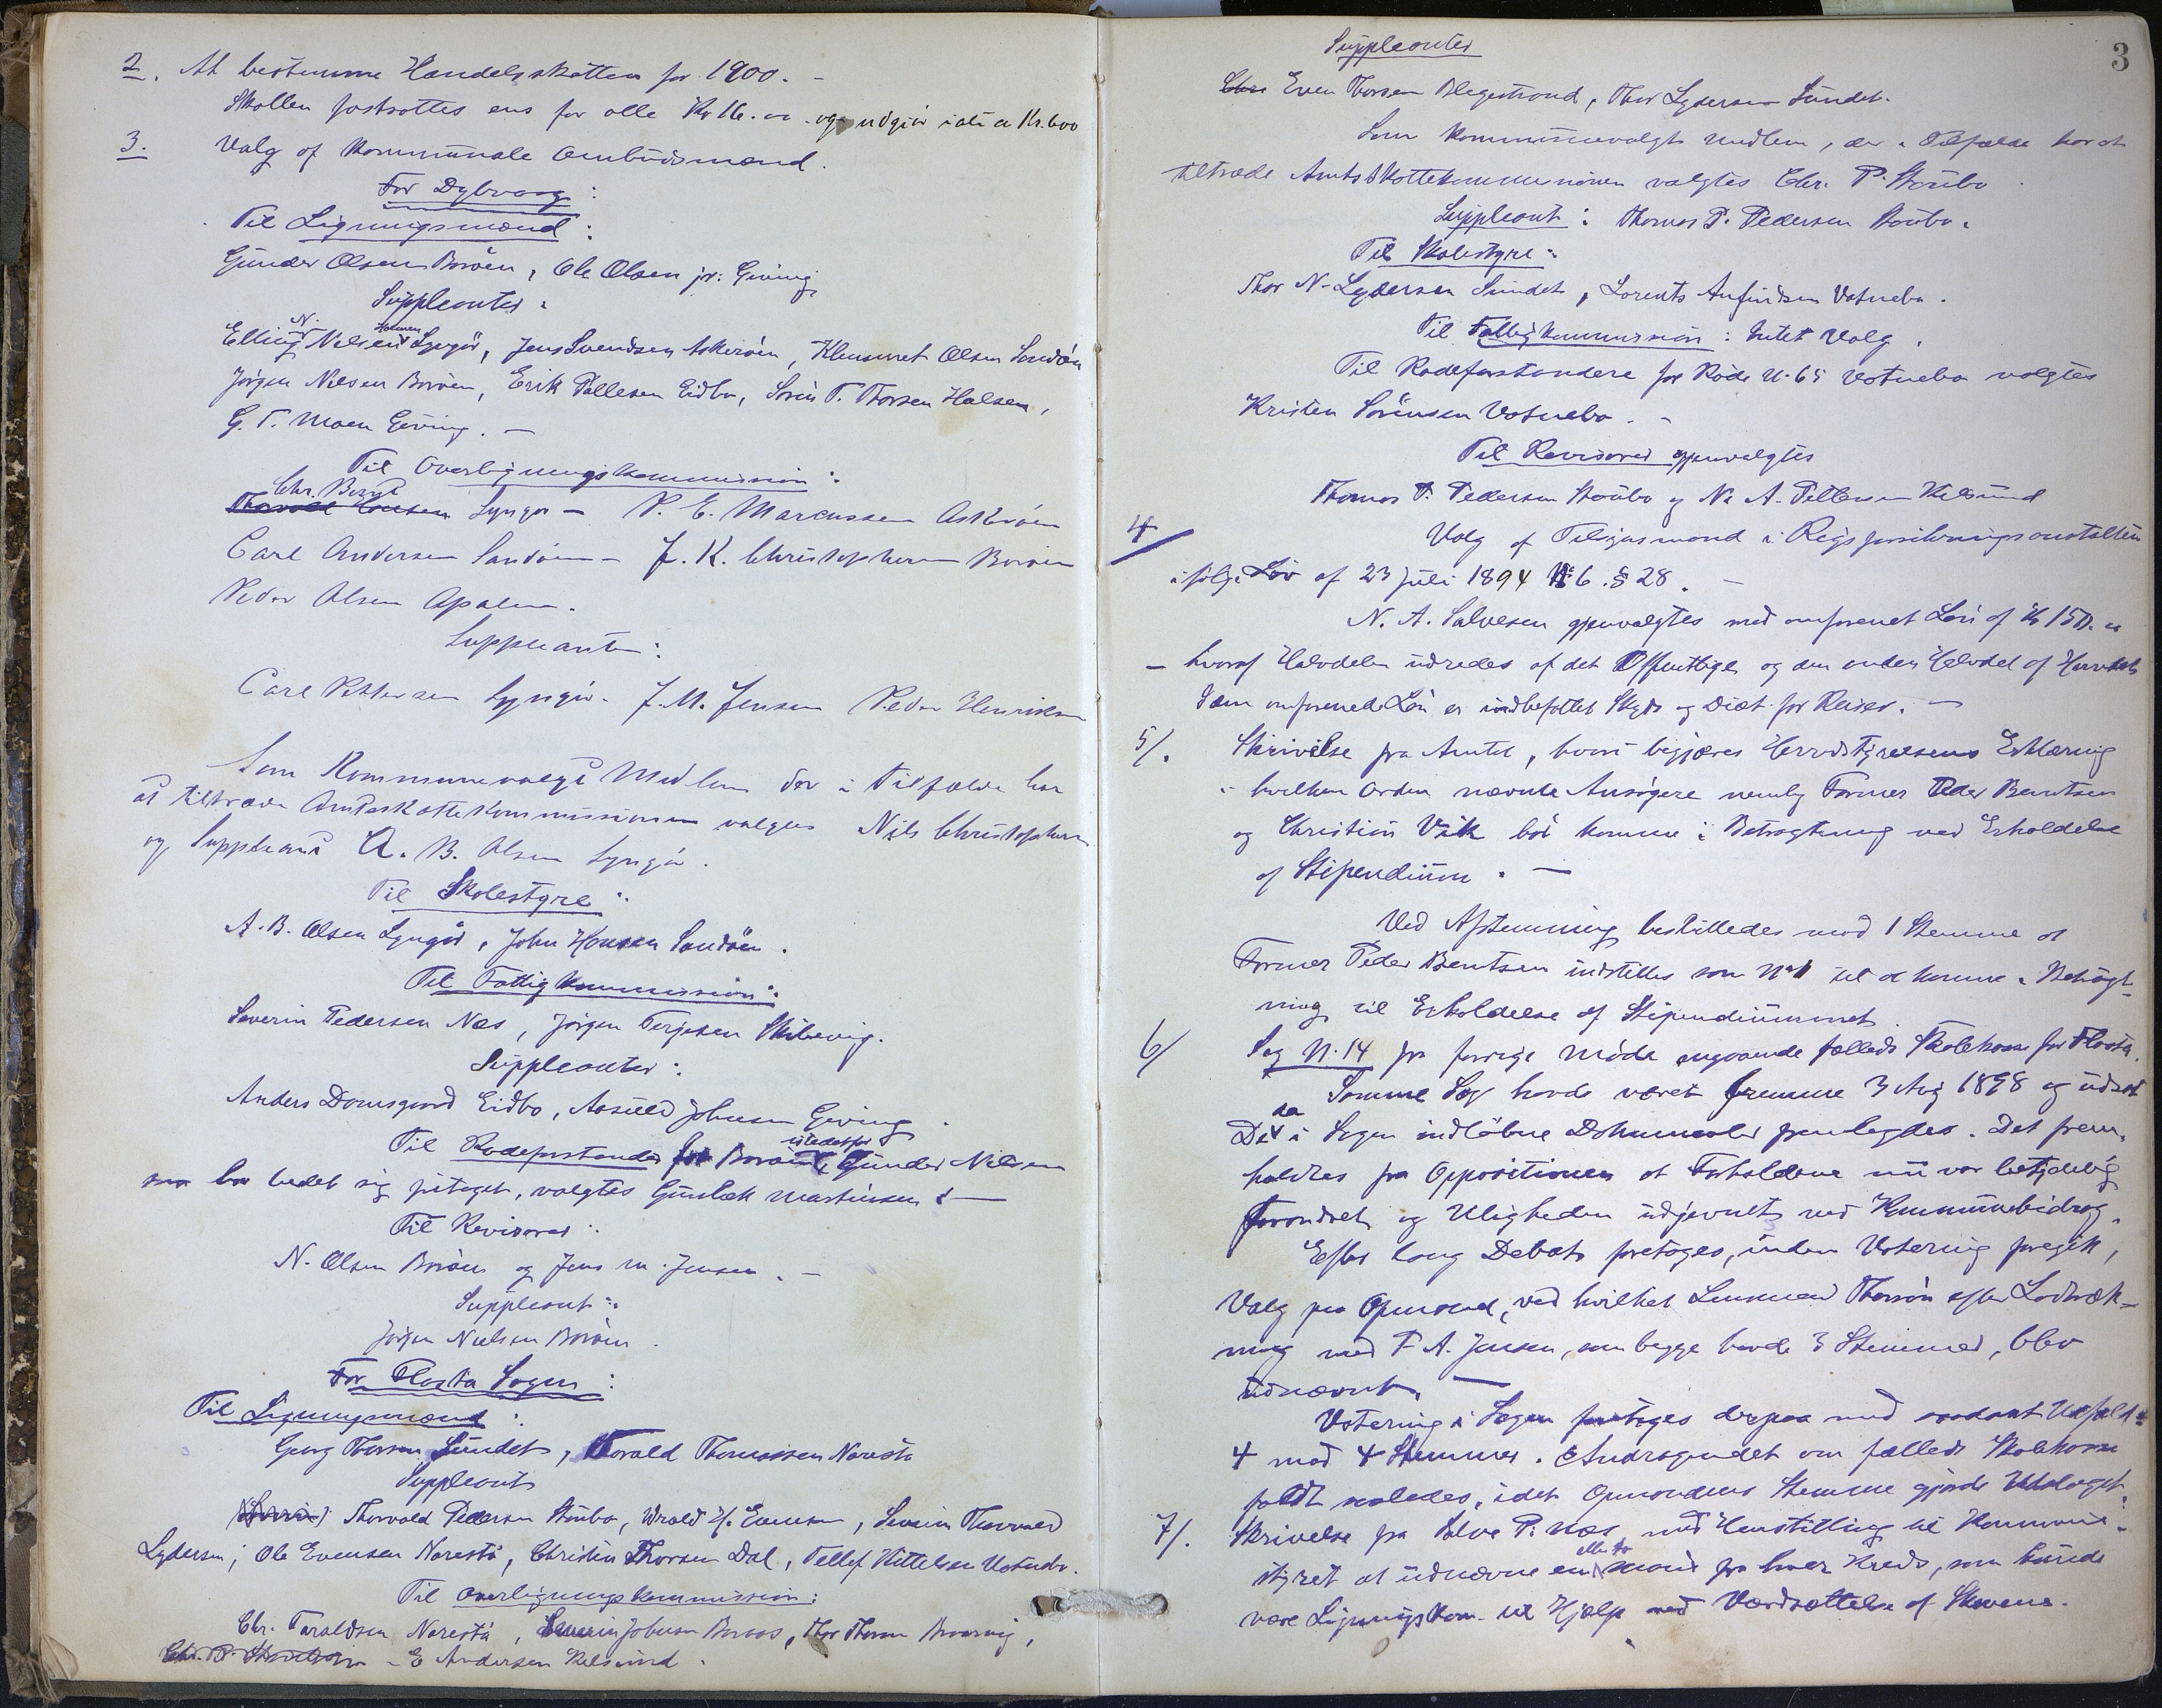 2. At bestemme Handelsskatten for 1900. -
Skatten fastsattes ens for alle Kr 16.00 - og udgiør ialt a Kr. 600
3. Valg af kommunale Ombudsmænd.
For Dybvaag:
Til Ligningsmænd:
Gunder Olsen Borøen, Ole Olsen jr. Geving
Suppleanter:
Elling N. Nielsen Holmen Lyngør, Jens Svendsen Askerøen, Klemmet Olsen Sandøen
Jørgen Nielsen Borøen, Erik Pallesen Eidbo, Søren T. Thorsen Halsen,
G. T. Moen Geving. -
Til Overligningskommission:
Chr. Bernt
Thorvald Hansen Lyngør - P. E. Marcussen Askerøen
Carl Andersen Sandøen - J. K. Christophersen Borøen
Peder Olsen Apalnes.
Suppleanter:
Carl Pettersen Lyngør - J. M. Jensen Peder Henriksen
Som Kommunevalgt Medlem der i Tilfælde har
at tiltræde Amtsskattekommissionen valgtes Nils Christophersen
og Suppleant A. B. Olsen Lyngør.
Til Skolestyre:
A. B. Olsen Lyngør, John Hansen Sandøen.
Til Fattigkommission:
Severin Pedersen Næs, Jørgen Terjesen Skibevig.
Suppleanter:
Anders Domsgaard Eidbo, Johnsen Geving.
Til Rodeforstander for Borøen, istedetfor Gunder Nilsen
som har bedet sig fritaget, valgtes Gunlek Martinsen. -
Til Revisorer:
N. Olsen Borøen og Jens M. Jensen. -
Suppleant:
Jørgen Nielsen Borøen.
For Flosta Sogn:
Til Ligningsmænd:
Georg Thorsen Sundet, Thorald Thomassen Narestø
Suppleant
Thorvald Pedersen Staubo, H. Evensen, Severin Thorvald
Lydersen, Ole Evensen Narestø, Christen Thorsen Dal, Tellef Kittelsen Vatnebo.
Til Overligningskommission:
Chr. Taraldsen Narestø, Severin Johnsen Boraas, Thor Thorsen
Chr. P. - E Andersen Kilsund.
3
Suppleanter
Chr. Even Thorsen Blegestrand, Thor Lydersen Sundet.
Som kommunevalgt Medlem, der i Tilfælde har at
tiltræde Amtsskattekommissionen valgtes Chr. P. Staubo.
Suppleant: Thomas P. Pedersen Staubo.
Til Skolestyre:
Thor N. Lydersen Sundet, Lorents Anfindsen Vatnebo.
Til Fattigkommission: Intet Valg.
Til Rodeforstandere for Rode N. 65 Vatnebo valgtes
Kristen Sørensen Vatnebo. -
Til Revisorer gjenvalgtes
Thomas P. Pedersen Staubo og N. A. Pettersen Kilsund
4 Valg af Tilsynsmand i Rigsforsikringsanstalten
ifølge Lov af 23 Juli 1894 N: 6. § 28. -
N. A. Salvesen gjenvalgtes med omforenet Løn af Kr 150.00
- hvoraf Halvdelen udredes af det Offentlige og den anden Halvdel af Herredet
I den omforenede Løn er indbefattet Skyds og Diæt for Reiser. -
5/. Skrivelse fra Amtet, hvori begjæres Herredstyrelsens Erklæring
i hvilken Orden nævnte Ansøgere nemlig Farmer Peder Berntsen
og Christian Vik bør komme i Betragtning ved Erholdelse
af Stipendium. -
Ved Afstemning besluttedes mod 1 Stemme at
Farmer Peder Berntsen indstilles som No 1 til at komme i Betragt-
ning til Erholdelse af Stipendiummet.
6/ Sag N. 14 fra forrige Møde angaaende fælleds Skolekasse for Flosta.
Samme Sag havde været fremme 3 Aug 1898 og udsat
da De i Sagen indløbne Dokumenter fremlagdes. Det frem-
holdtes fra Oppositionen at Forholdene nu var betydelig
forandret og Uligheden udjevnet ved Kommunebidrag.
Efter lang Debat foretoges, inden Votering foregik,
Valg paa Opmand, ved hvilket Lensmand Thorsøn efter Lodtræk-
ning med F. A. Jensen, som begge havde 3 Stemmer, blev
udnævnt. -
Votering i Sagen foretoges derpaa med saadant Udfald:
4 mod 4 Stemmer. Andragendet om fælleds Skolekasse
faldt saaledes, idet Opmandens Stemme gjorde Udslaget.
7/. Skrivelse fra Salve P. Næs med Henstilling til Kommune-
styret at udnævne en eller to Mænd fra hver Kreds, som kunde
være Ligningskom. til Hjælp med Værdsættelse af Skovene.